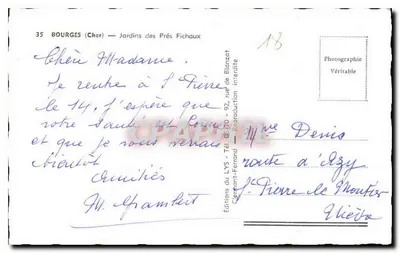 35 BOURGES (Cher) — Jardins des Prés Fichaux
Chère Madame.
Je rentre à St Pierre
le 14, J'espère que
votre santé est bonne
et que je vous verrai
bientôt
Amitiés
M. Gambert
Editions du LYS - Tél. - 92, rue de Blanzat
Clermont-Ferrand — Reproduction interdite
13
Photographie
Véritable
Mme Denis
route d'Azy
St Pierre le Moutier
Nièvre